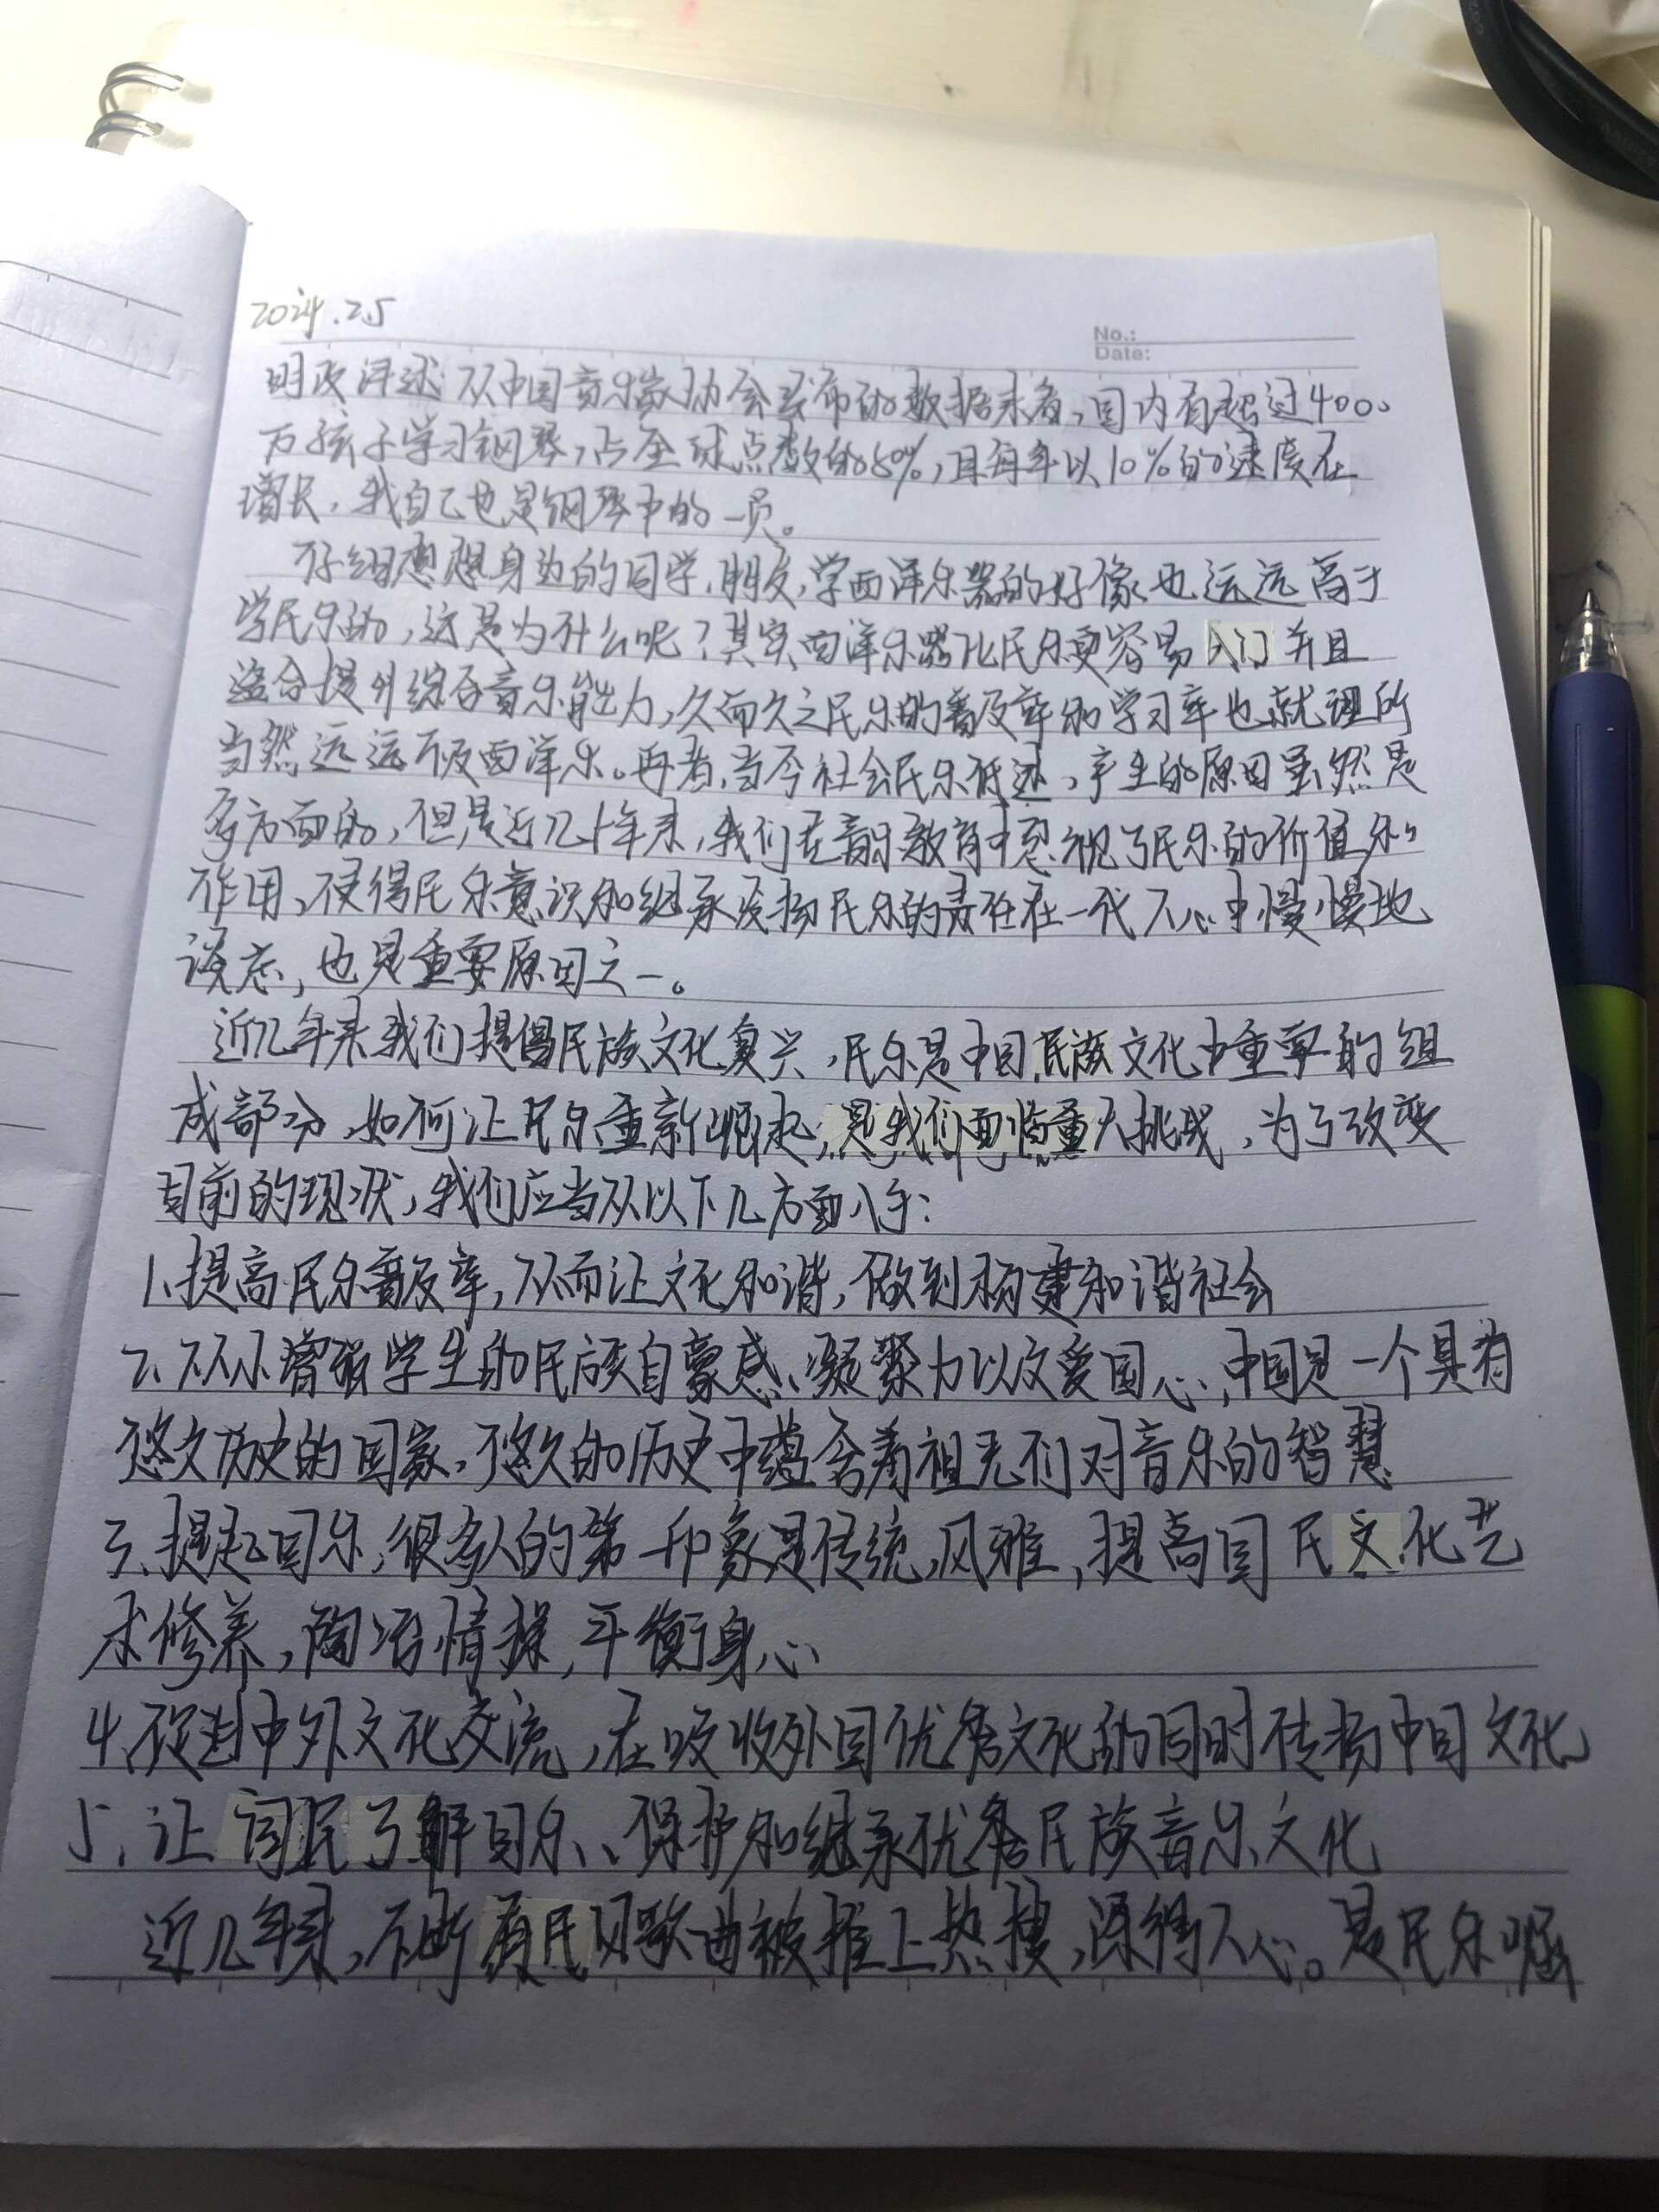 2024.2.5
No.:
Date:
时政评述：从中国音乐家协会发布的数据来看，国内有超过4000
万孩子学习钢琴，占全球总数的80%，且每年以10%的速度在
增长，我自己也是钢琴中的一员。
仔细想想身边的同学，朋友，学西洋乐器的好像也远远高于
学民乐的，这是为什么呢？其实西洋乐器比民乐更容易入门并且
适合提升综合音乐能力，久而久之民乐的普及率和学习率也就理所
当然远远不及西洋乐。再者，当今社会民乐低迷，产生的原因虽然是
多方面的，但是近几十年来，我们在音乐教育中忽视了民乐的价值和
作用，使得民乐意识和继承发扬民乐的责任在一代人心中慢慢地
淡忘，也是重要原因之一。
近几年来我们提倡民族文化复兴，民乐是中国民族文化中重要的组
成部分，如何让民乐重新崛起，是我们面临重大挑战，为了改变
目前的现状，我们应当从以下几方面入手：
1.提高民乐普及率，从而让文化和谐，做到构建和谐社会
2.从小增强学生的民族自豪感、凝聚力以及爱国心，中国是一个具有
悠久历史的国家，悠久的历史中蕴含着祖先们对音乐的智慧
3.提起国乐，很多人的第一印象是传统，风雅，提高国民文化艺
术修养，陶冶情操，平衡身心
4.促进中外文化交流，在吸收外国优秀文化的同时传扬中国文化
5.让国民了解国乐、保护和继承优秀民族音乐文化
近几年来，不断有民风歌曲被推上热搜，深得人心。是民乐崛